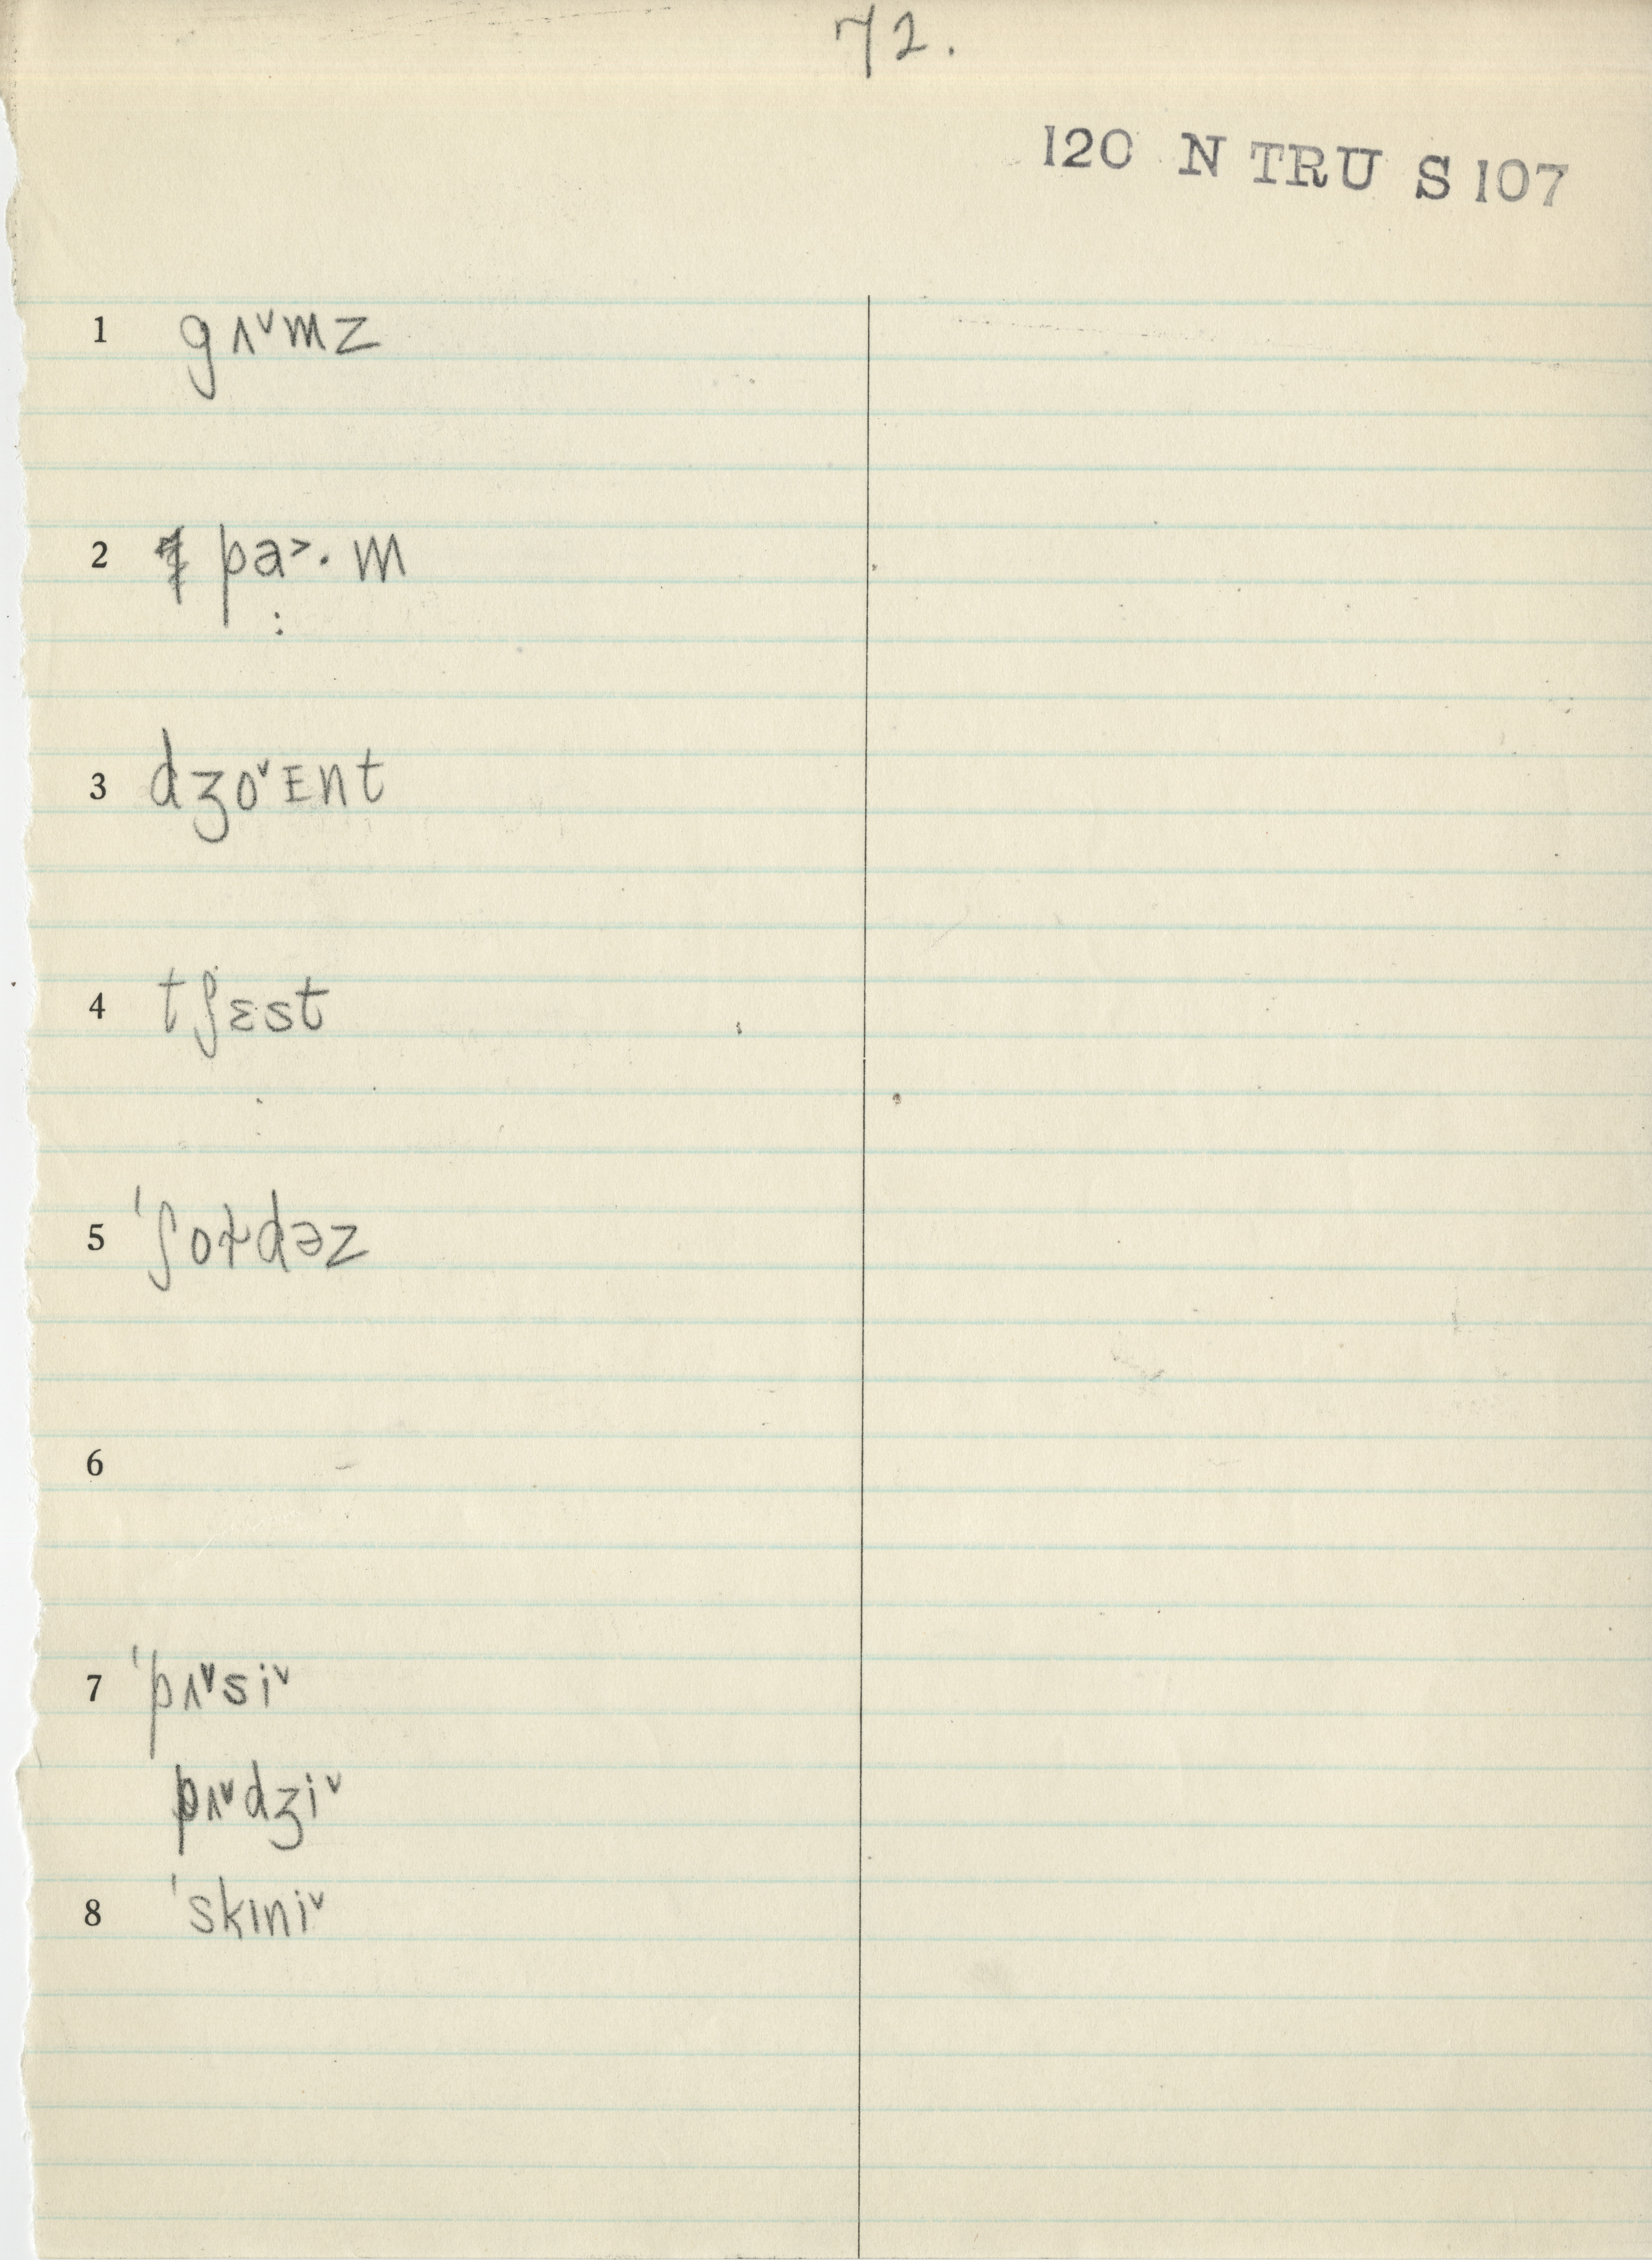 72.
120 N TRU S 107
1 gʌ˅mz
2 pa˃·m
:
3 dʒo˅ɪnt
4 tʃɛst
5 ˈʃoɫdəz
6
7 ˈpʌ˅si˅
pʌ˅dʒi˅
8 ˈskɪni˅